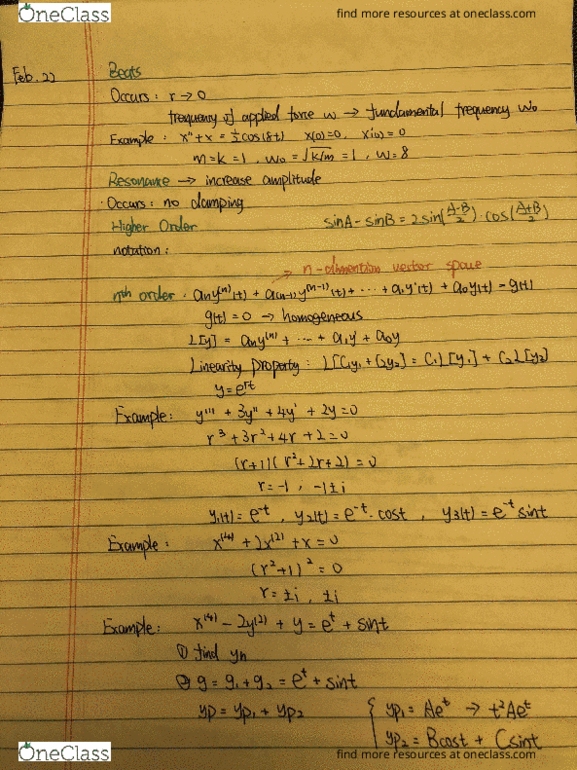 OneClass
find more resources at oneclass.com
Feb. 22
Beats
Occurs: r → 0
frequency of applied force ω → fundamental frequency ω₀
Example: x" + x = ½cos(8t) x(0)=0, x'(0)=0
m=k=1, ω₀ = √k/m = 1, ω=8
Resonance → increase amplitude
Occurs: no damping
sinA - sinB = 2sin(A-B/2)·cos(A+B/2)
Higher Order
notation:
n-dimention vector space
nth order: aₙy⁽ⁿ⁾(t) + a₍ₙ₋₁₎y⁽ⁿ⁻¹⁾(t) + ··· + a₁y'(t) + a₀y(t) = g(t)
g(t) = 0 → homogeneous
L[y] = aₙy⁽ⁿ⁾ + ··· + a₁y' + a₀y
Linearity property: L[C₁y₁ + C₂y₂] = C₁L[y₁] + C₂L[y₂]
y = eʳᵗ
Example: y''' + 3y" + 4y' + 2y = 0
r³ + 3r² + 4r + 2 = 0
(r+1)(r²+2r+2) = 0
r = -1, -1±i
y₁(t) = e⁻ᵗ, y₂(t) = e⁻ᵗ·cost, y₃(t) = e⁻ᵗsint
Example: x⁽⁴⁾ + 2x⁽²⁾ + x = 0
(r²+1)² = 0
r = ±i, ±i
Example: x⁽⁴⁾ - 2y⁽²⁾ + y = eᵗ + sint
① find yh
② g = g₁ + g₂ = eᵗ + sint
yp = yp₁ + yp₂
{ yp₁ = Aeᵗ → t²Aeᵗ
yp₂ = Bcost + Csint
OneClass
find more resources at oneclass.com